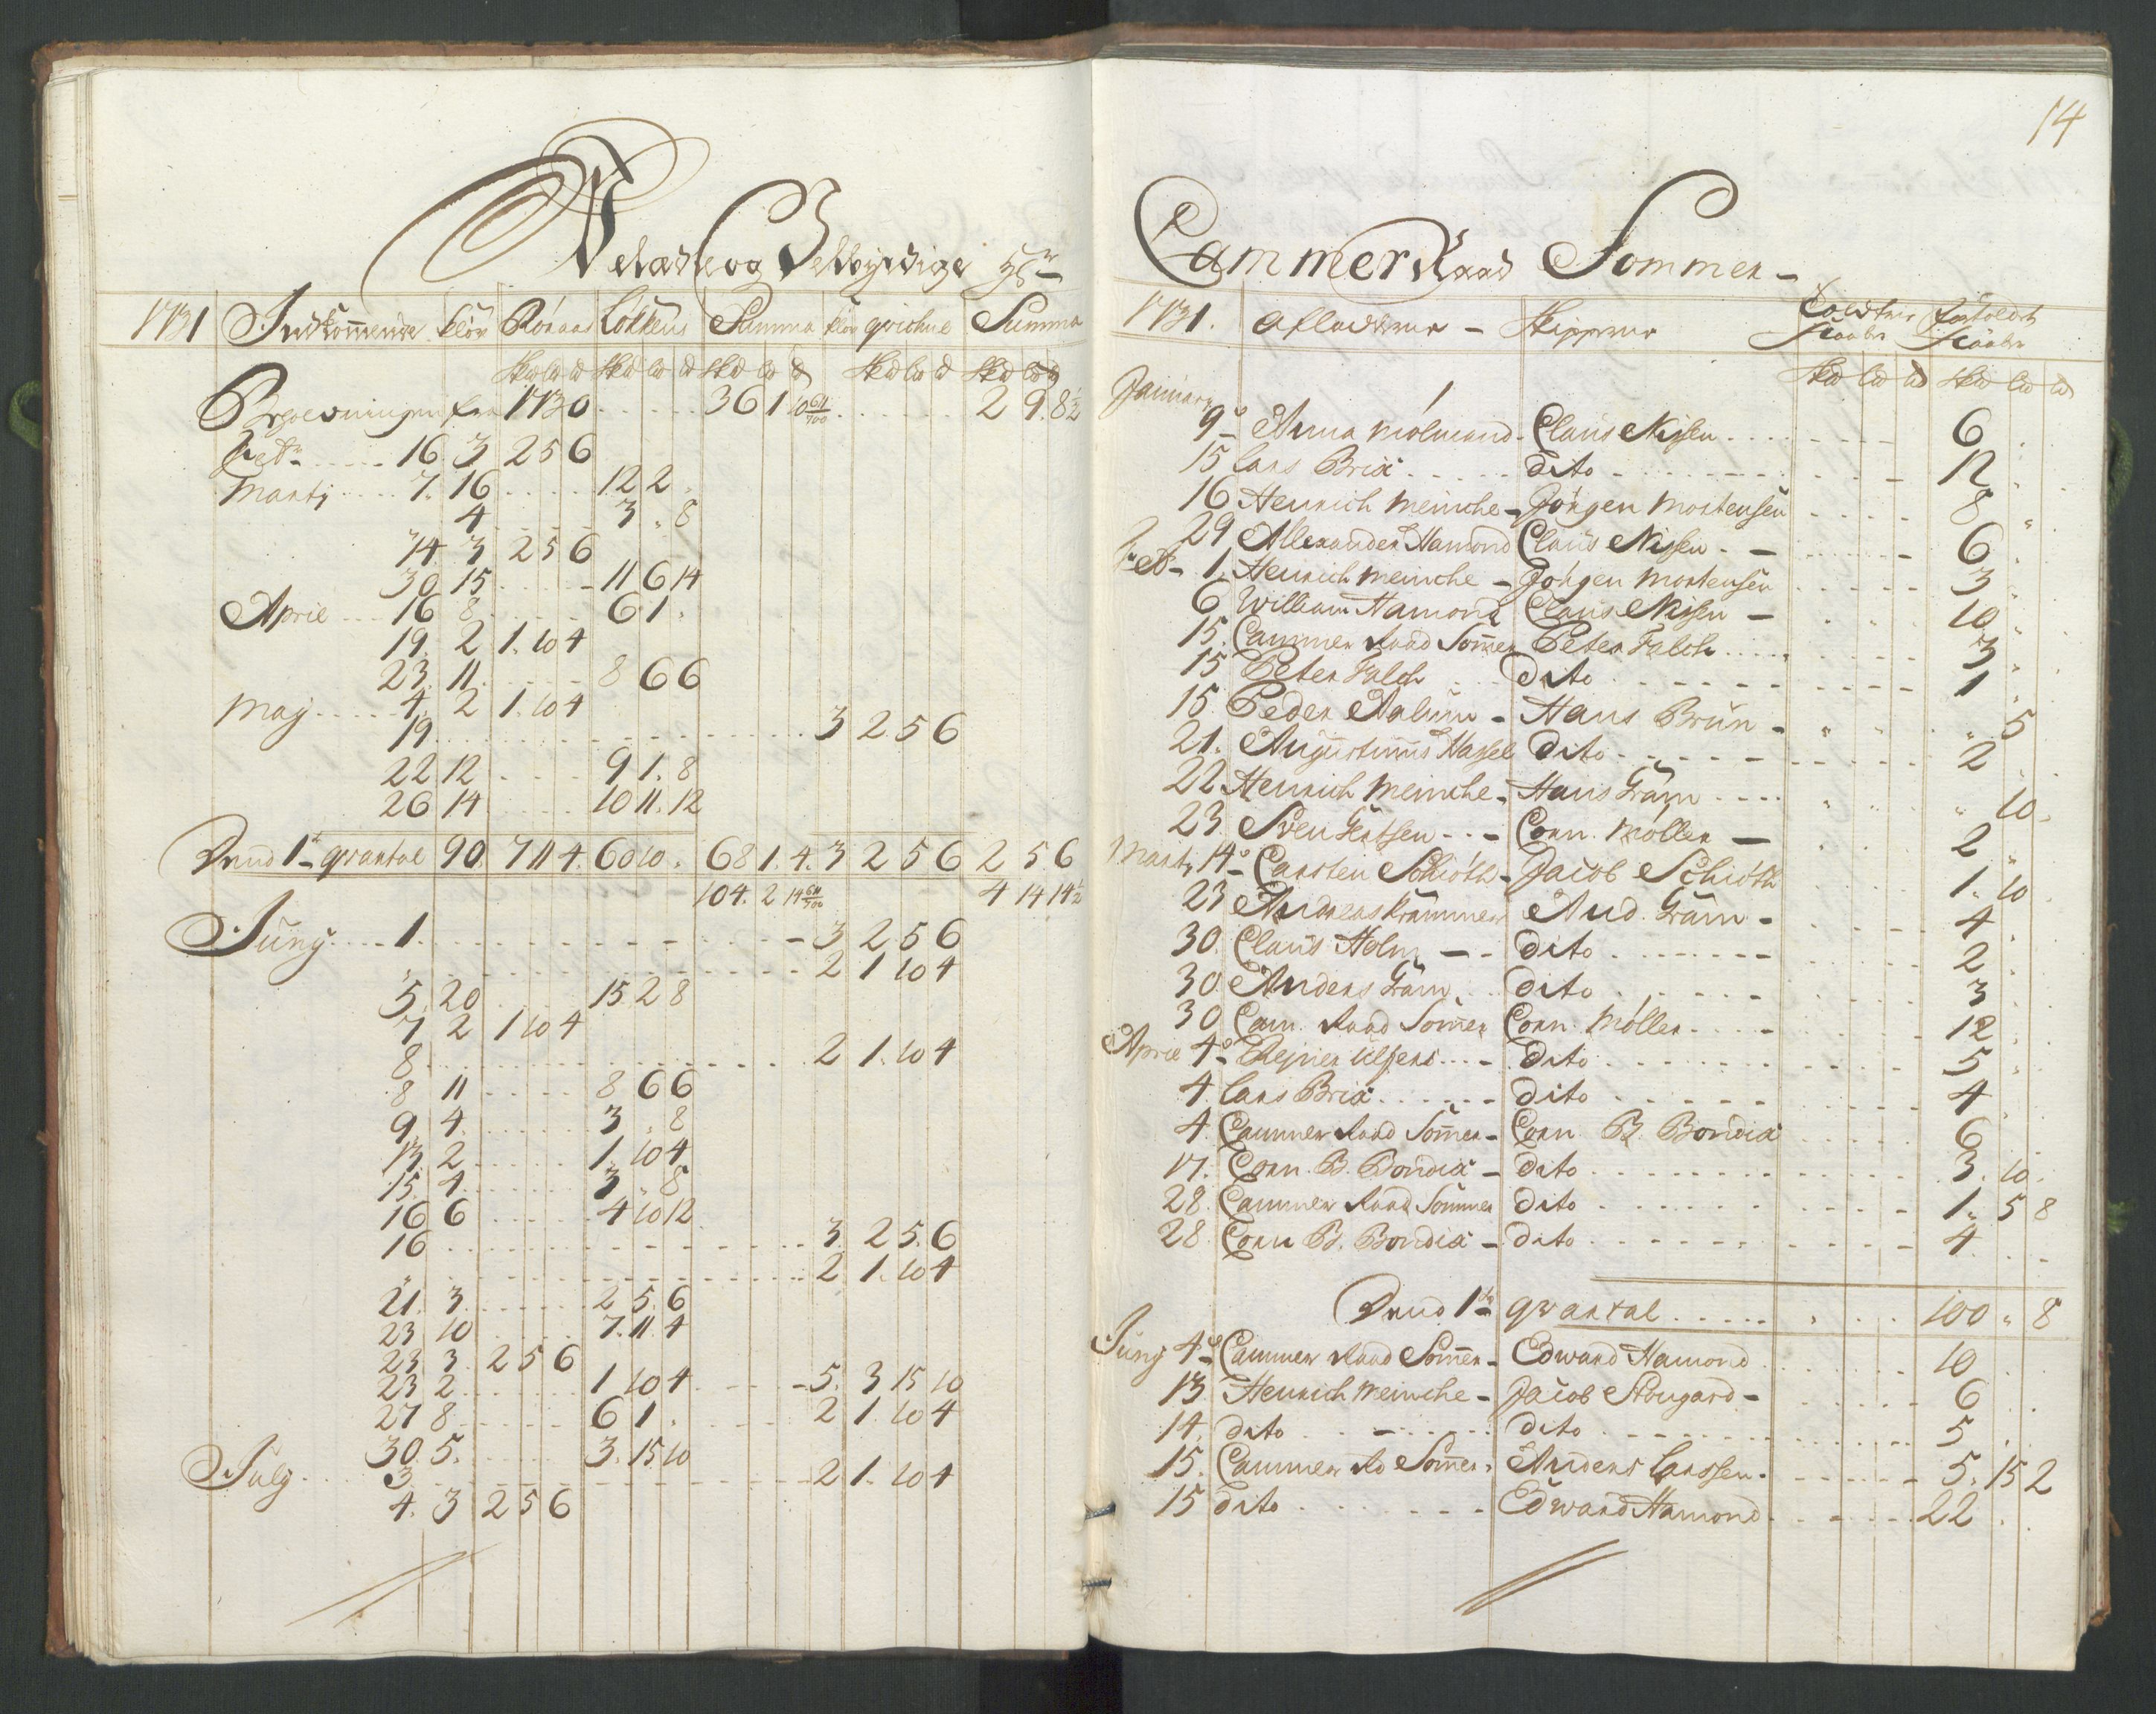 Velædle og Velbyrdige Hr
1731 Indkommende Kløv Rönaas Løkkens Summa Kløv qvichne Summa
Skd ld ld Skd ld ld Skd ld ld Skd ld ld Skd ld ld
fra 1730 . . . . . 36 1 10 . . . . . . 2 9. 8½
Feb. . . . . . 16 3 2 5 6
Martj . . . . 7. 16 . . . . 12 2
4 . . . . 3 „ 8
14. 3 2 5 6
30 15 . . . . 11 6 14
April . . . 16 8 . . . . 6 1.
19. 2 1. 10 4
23. 11 . . . . 8 6 6
Maj . . . . . 4. 2 1. 10 4
19 . . . . . . . . 3 2 5 6
22 12 . . . . 9 1. 8
26 14 . . . . 10 11. 12
1te qvartal 90. 7 11 4. 60 10 „ 68 1. 4. 3 2 5 6 2 5. 6
104. 2 14 4 14 14½
Junj . . . . 1 . . . . . . . . 3 2 5 6
„ . . . . . . . . 2 1 10 4
5 20 . . . . 15 2 8
7 2 1 10 4
8 . . . . . . . . 2 1. 10 4
8 11 . . . . 8 6 6
9 4. . . . . 3 „ 8
13 2 . . . . 1. 10 4
15. 4. . . . . 3 „ 8
16 6 . . . . 4 10 12
16 . . . . . . . . 3. 2 5. 6
„ . . . . . . . . 2 1. 10 4
21. 3. . . . . 2 5. 6
23 10 . . . . 7. 11. 4
23 3. 2 5 6
23 2 . . . . 1 10 4 . . . . 5. 3 15 10
27 8 . . . . 6 1 „ . . . . 2 1. 10 4
30. 5. . . . . 3. 15 10
July . . . 3 . . . . . . . . 2 1. 10 4
4. 3 2 5 6
14
Cammer Raad Sommer
1731. Afladere – Skippere
Skd ld ld Skd ld ld
January 9de Anna Molmand – Claus Nissen . . . . 6
15 Lars Brix . . . . dito . . . . 12
16 Henrich Meinche – Jörgen Mortensen . . . . 8
29 Allexander Hamond Claus Nissen . . . . 6
Feb – 1. Henrich Meinche – Jörgen Mortensen . . . . 3
6 William Hamond Claus Nissen – 10
15. Cammer Raad Somer Peter Falch . . . . 3
15 Peter Falch . . . dito . . . . 1
15. Peder Aalum – Hans Brun – „ 5
21. Augustinus Hassel dito . . . . 2
22 Henrich Meinche – Hans Gram . . . . „ 10
23. Sven Gertsen – – Corn. Möller – 2
Martj 14de Carsten Schiöth – Jacob Schiöth 1. 10
23 Andreas Krammer And. Gram – 4
30. Claus Holm – – dito . . . . 2
30 Anders Gram . . dito . . . . 3
30 Cam. Raad Somer Corn. Möller . . . . 12
April 4de dito . . . . 5
4. Lars Brix . . . . dito . . . . 4
4. Cammer Raad Somer – Corn. B. Bondix . . . . 6
17. Corn. B. Bondix – dito . . . . 3. 10
28. Cammer Raad Sommer dito . . . . 1. 5 8
28. Corn B. Bondix – dito . . . . 4
1te qvartal . . . . . 100 „ 8
Junj 4de Cammer Raad Somer – Edward Hamond . . . . 10
13. Henrich Meinche – Jacob Stougard – 6
14. dito . . – . . . dito . . . . 5
15. Cammer Rd Somer – Anders Larssen . . . . 5. 15 2
15 dito . . . . . Edward Hamond . . . . 22